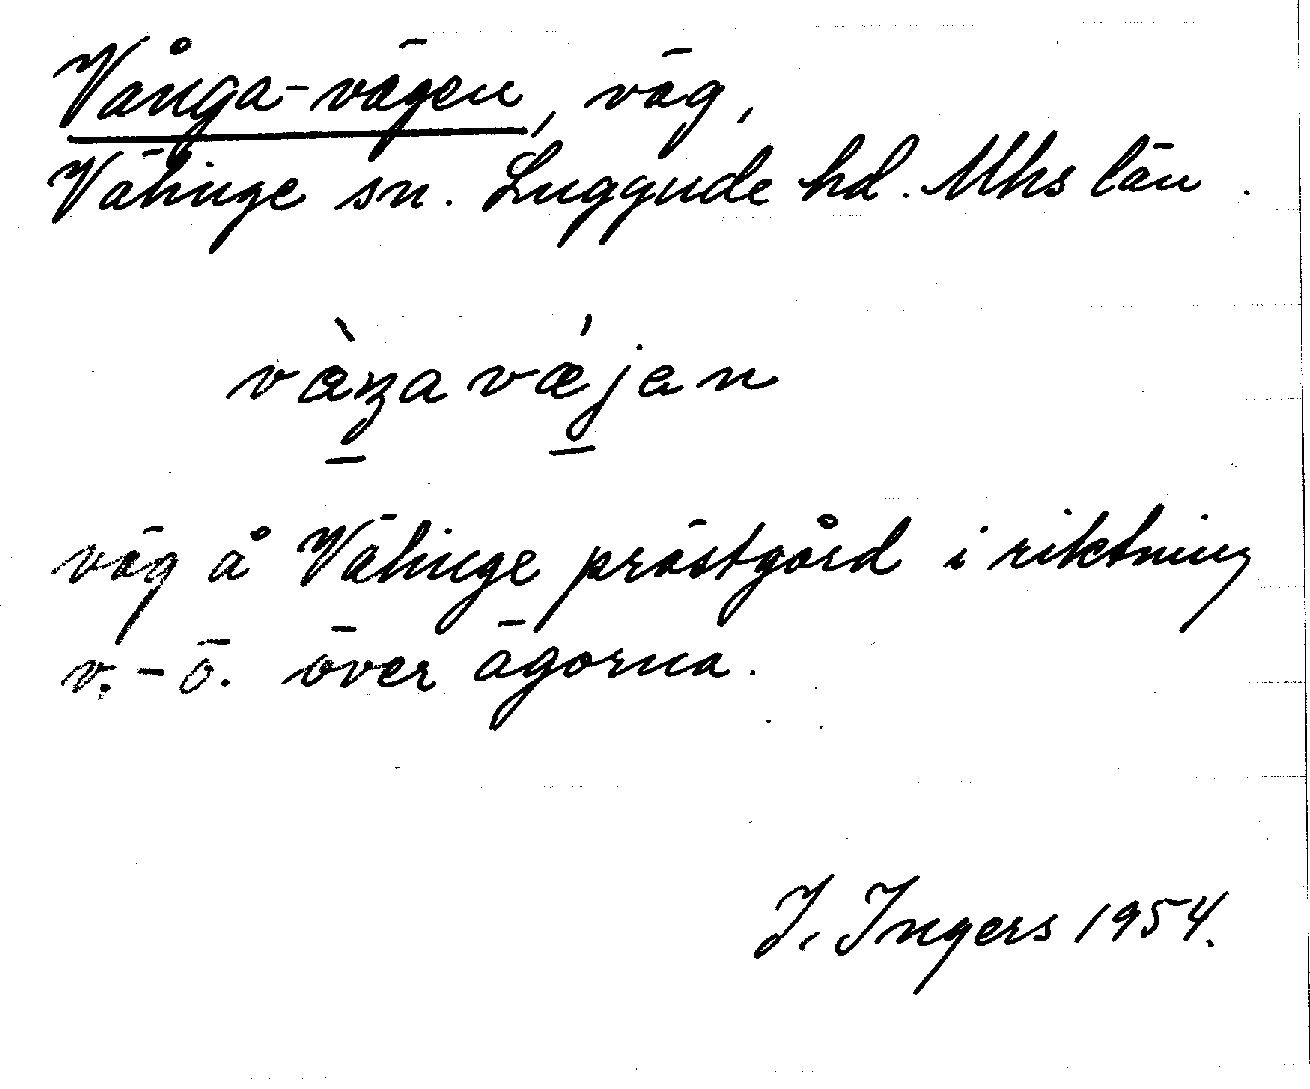 Vånga-vägen, väg,
Välinge sn. Luggude hd. Mhs län.
vàŋa vǽjen
väg å Välinge prästgård i riktning
v.-ö. över ägorna.
I. Ingers 1954.